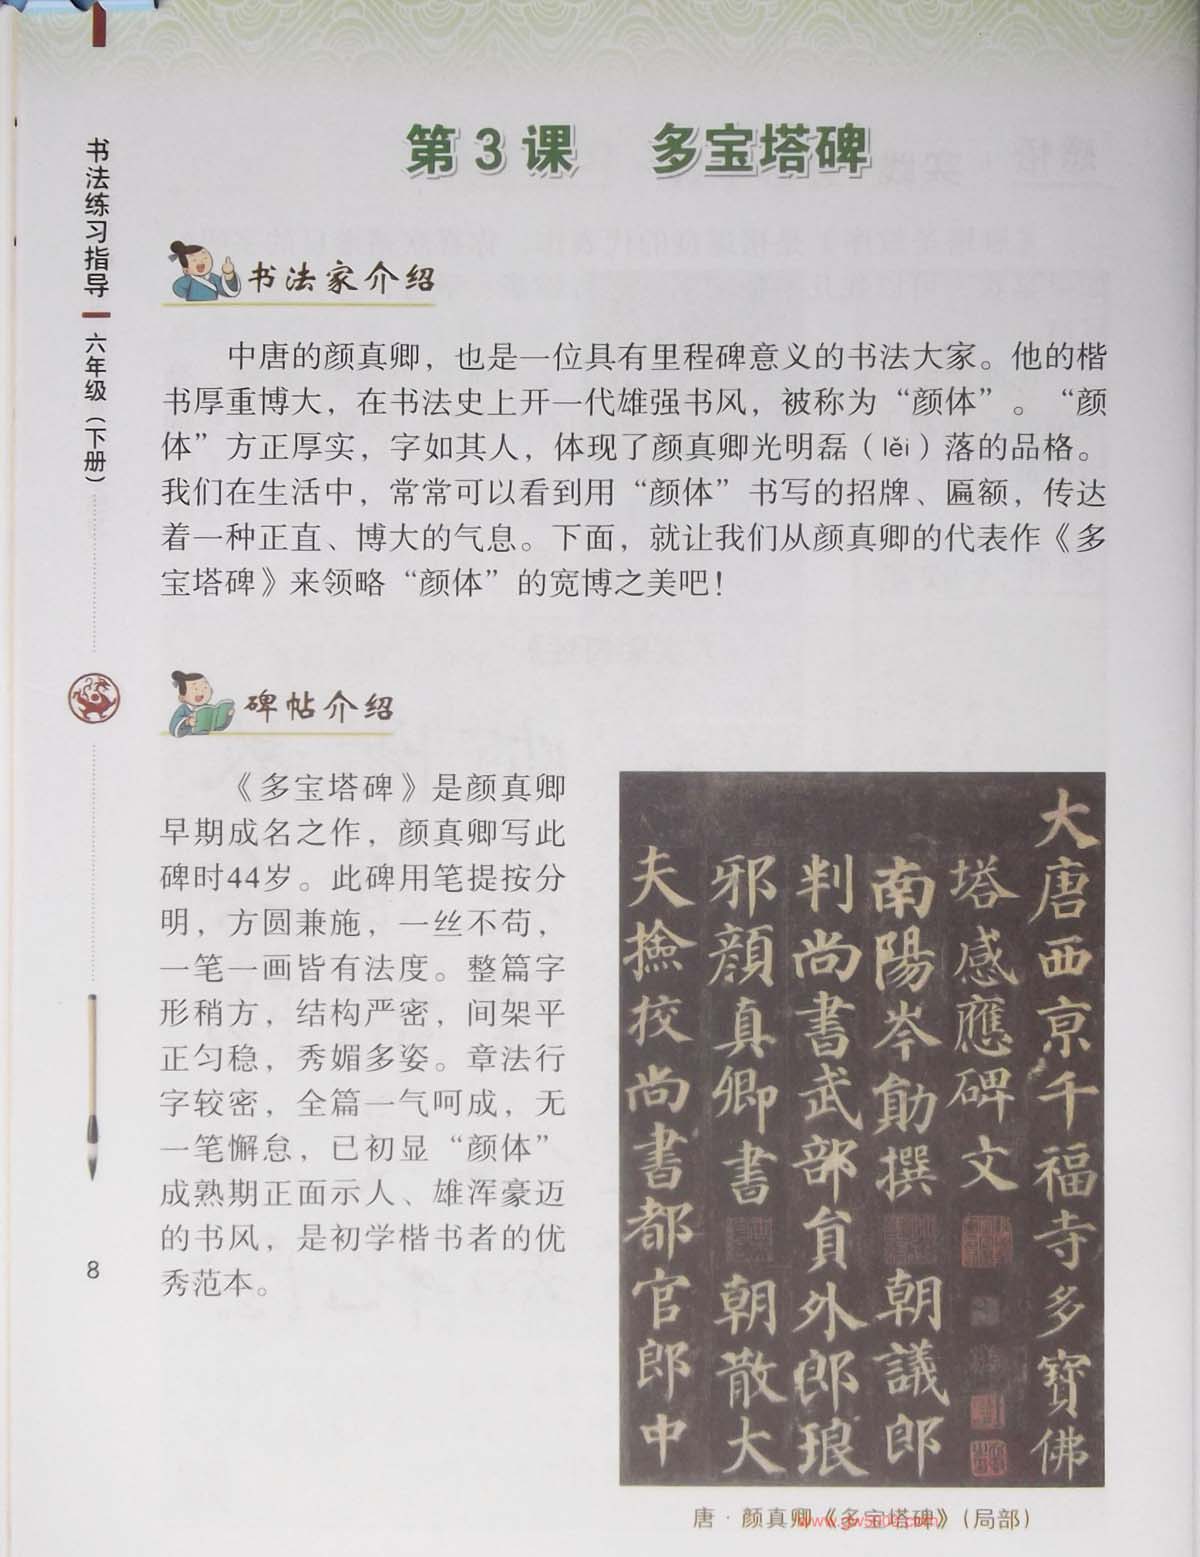 第3课 多宝塔碑
书法练习指导
六年级（下册）
8
书法家介绍
中唐的颜真卿，也是一位具有里程碑意义的书法大家。他的楷
书厚重博大，在书法史上开一代雄强书风，被称为“颜体”。“颜
体”方正厚实，字如其人，体现了颜真卿光明磊（lěi）落的品格。
我们在生活中，常常可以看到用“颜体”书写的招牌、匾额，传达
着一种正直、博大的气息。下面，就让我们从颜真卿的代表作《多
宝塔碑》来领略“颜体”的宽博之美吧！
碑帖介绍
《多宝塔碑》是颜真卿
早期成名之作，颜真卿写此
碑时44岁。此碑用笔提按分
明，方圆兼施，一丝不苟，
一笔一画皆有法度。整篇字
形稍方，结构严密，间架平
正匀稳，秀媚多姿。章法行
字较密，全篇一气呵成，无
一笔懈怠，已初显“颜体”
成熟期正面示人、雄浑豪迈
的书风，是初学楷书者的优
秀范本。
大唐西京千福寺多寶佛
塔感應碑文
南陽岑勛撰 朝議郎
判尚書武部員外郎琅
邪顏真卿書 朝散大
夫撿挍尚書都官郎中
唐·颜真卿《多宝塔碑》（局部）